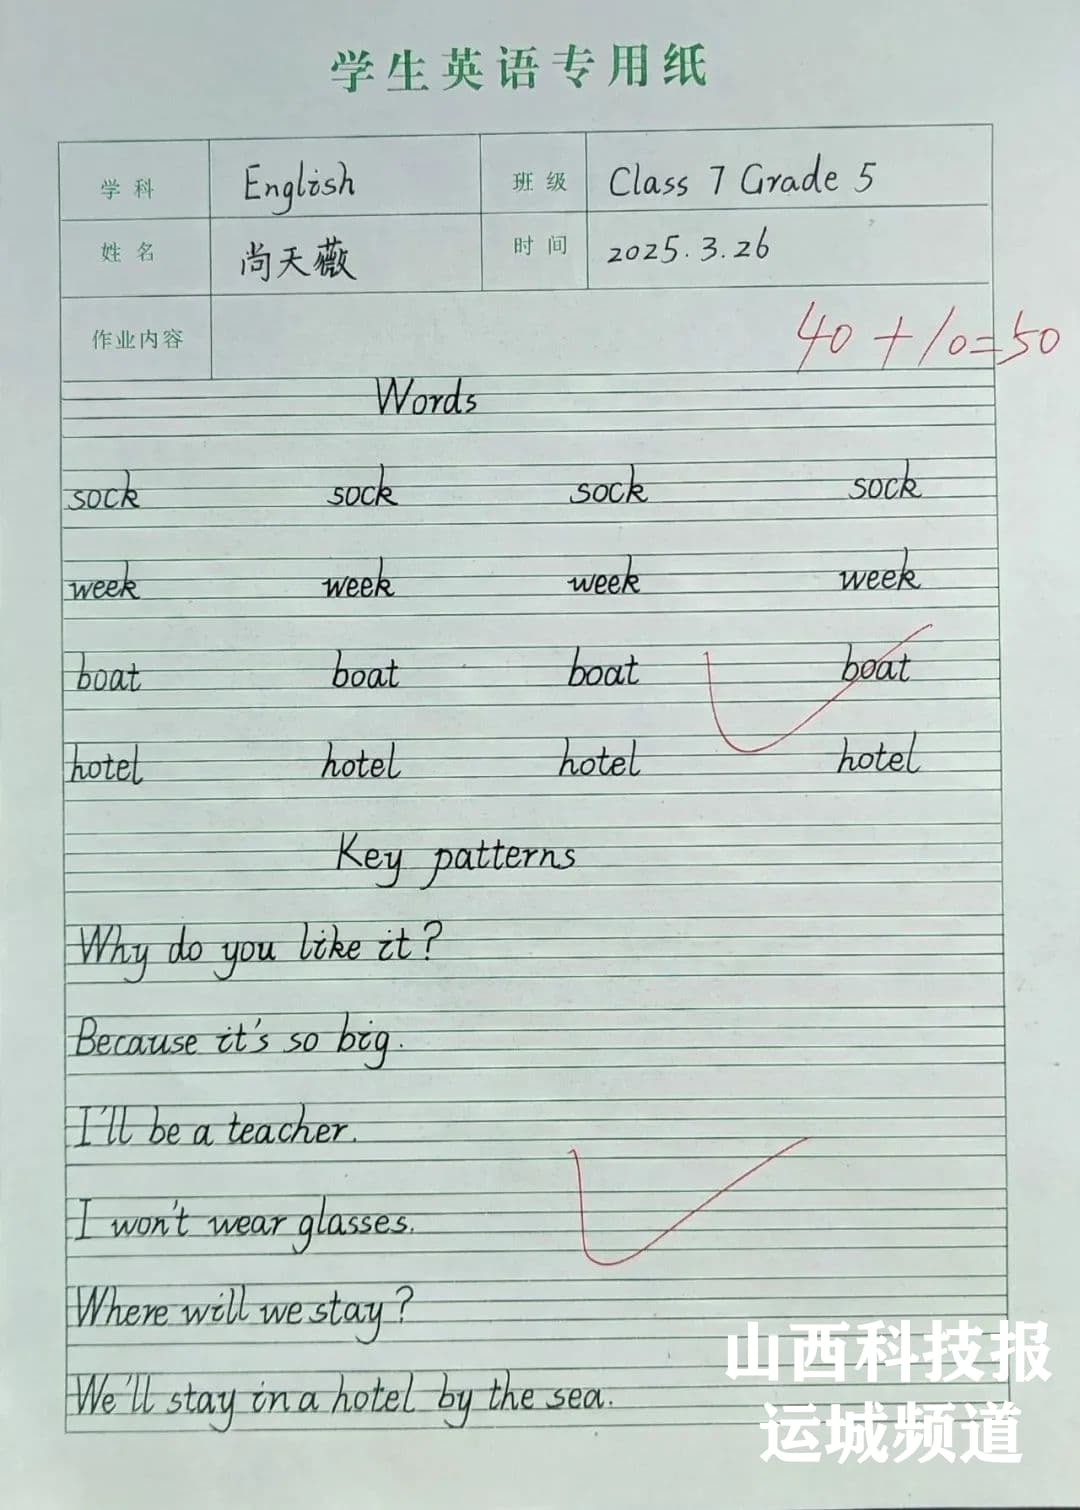 学生英语专用纸
学科 English 班级 Class 7 Grade 5
姓名 尚天薇 时间 2025.3.26
作业内容
40+10=50
Words
sock sock sock sock
week week week week
boat boat boat boat
hotel hotel hotel hotel
Key patterns
Why do you like it?
Because it's so big.
I'll be a teacher.
I won't wear glasses.
Where will we stay?
We'll stay in a hotel by the sea.
山西科技报
运城频道